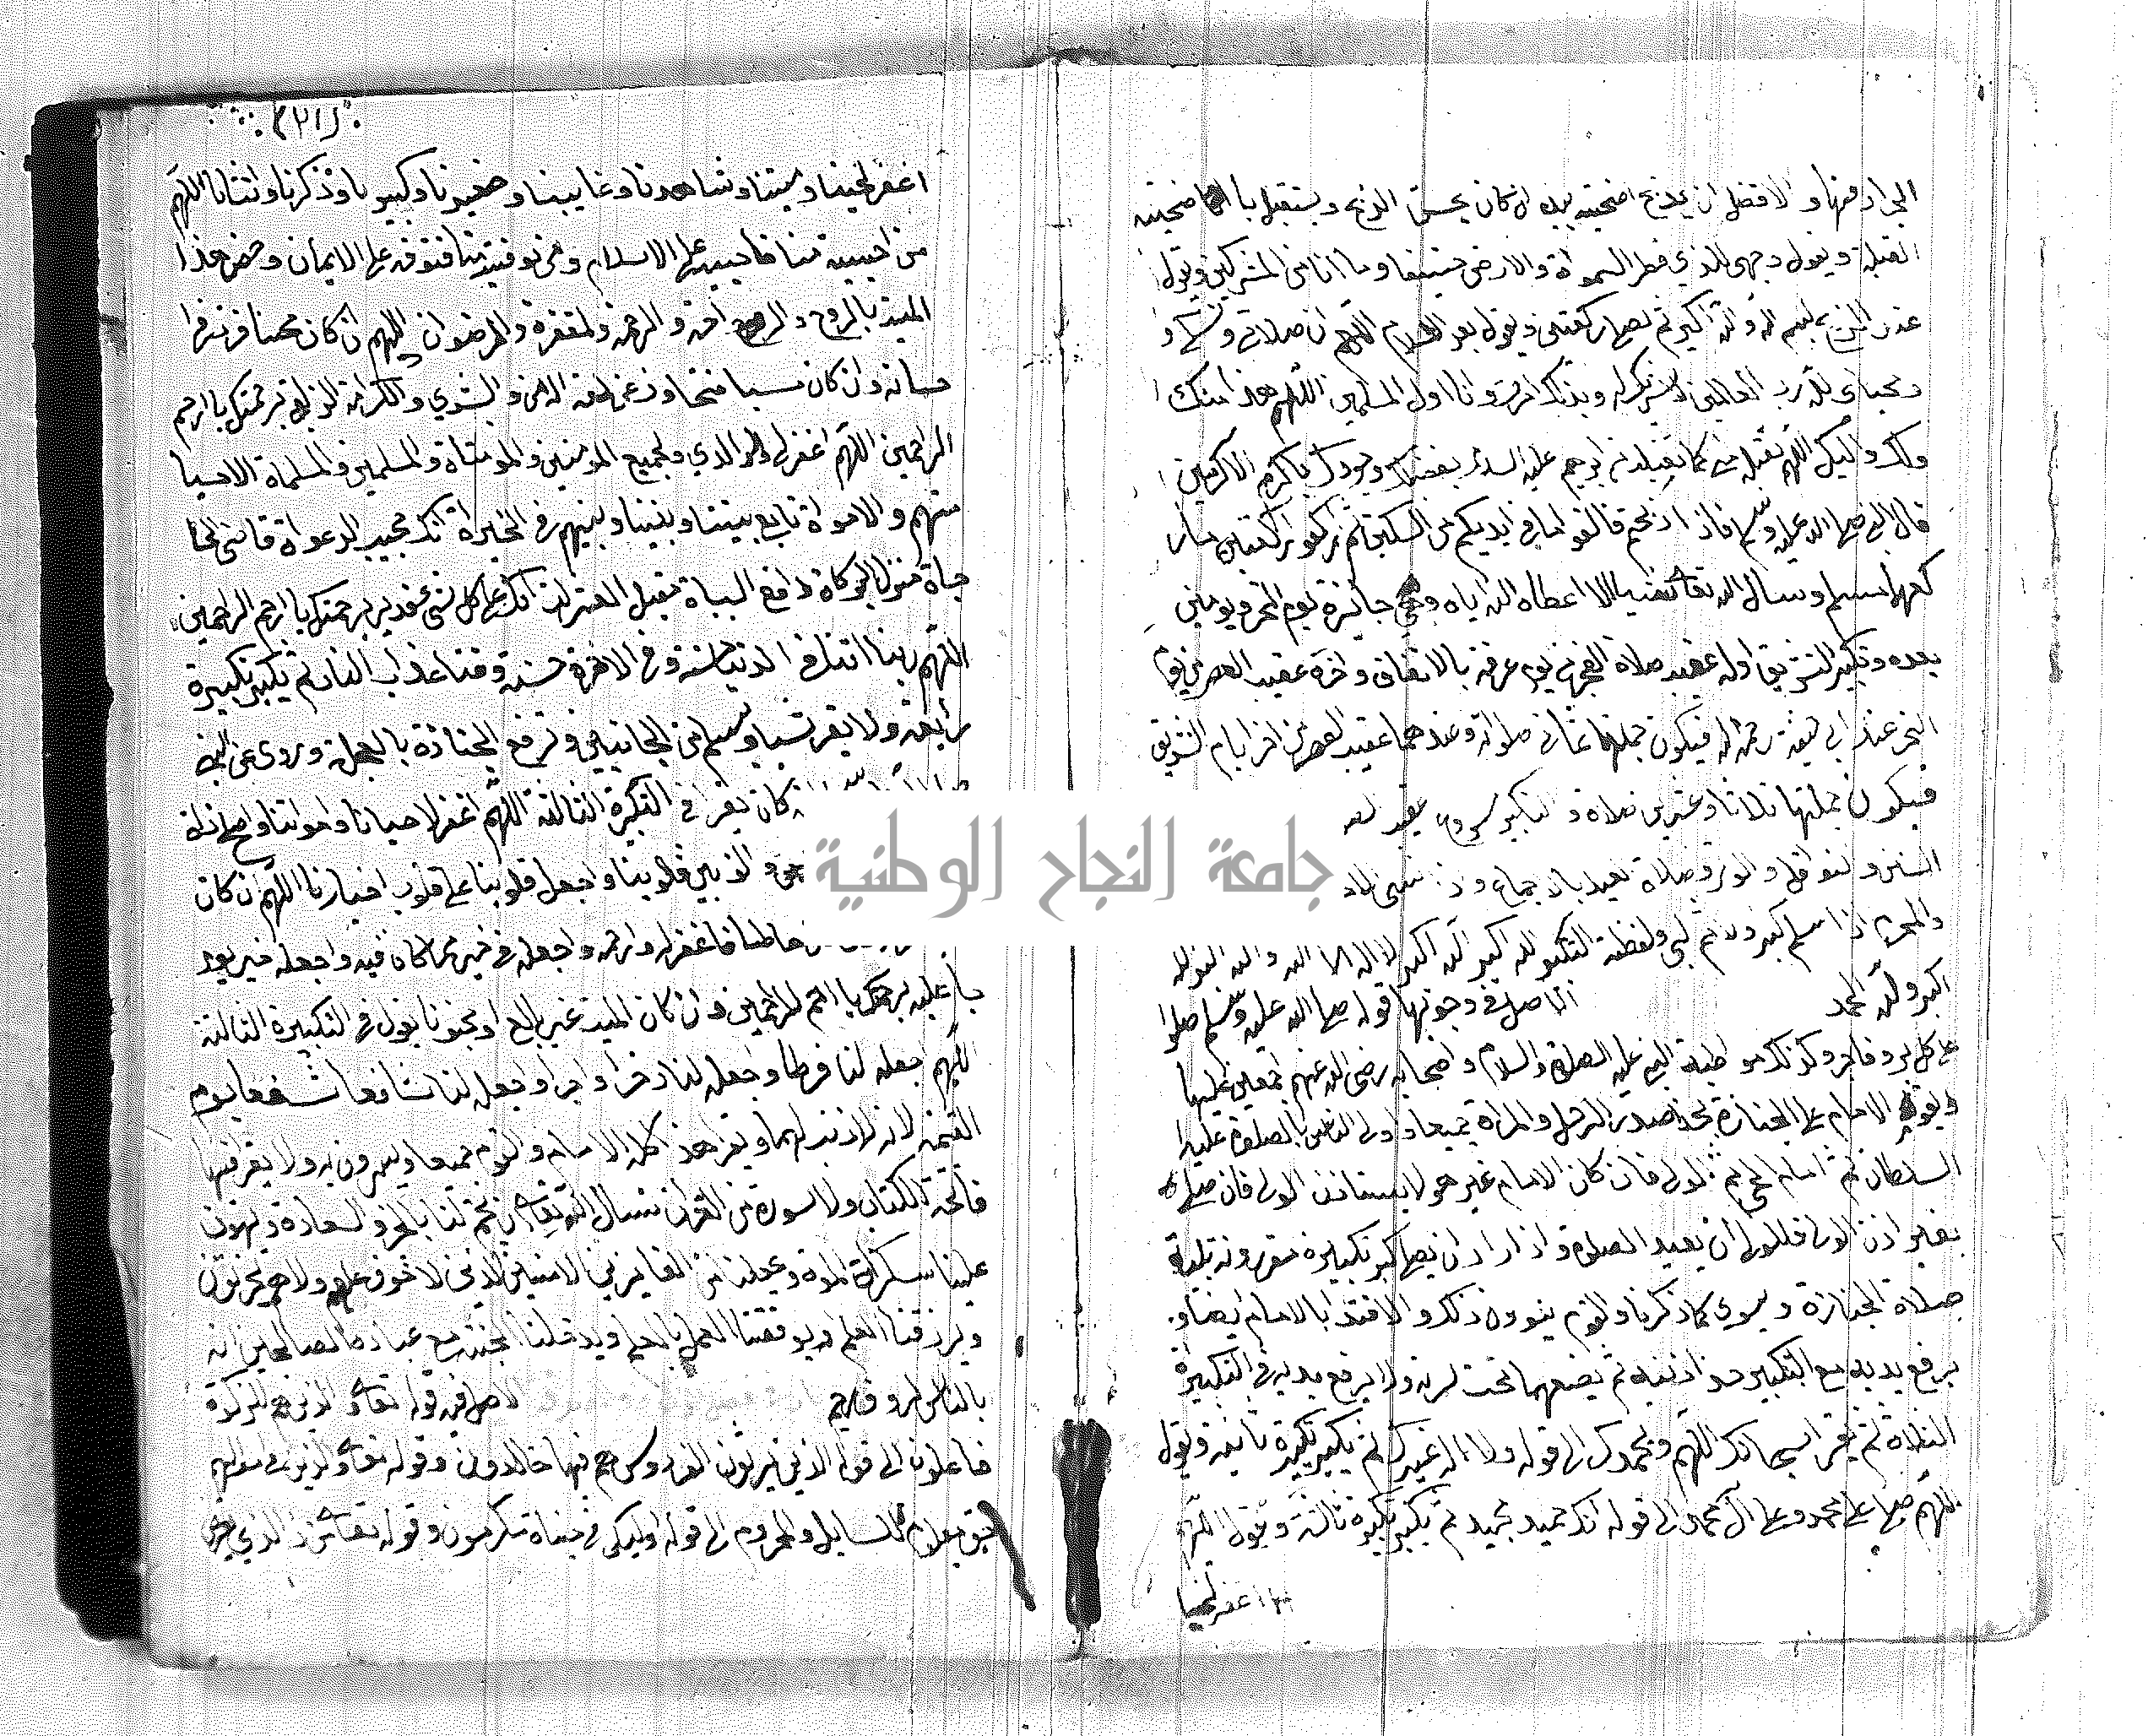 الجزار منها والافضل ان يذبح اضحيته بيده ان كان يحسن الذبح ويستقبل باضحيته
القبلة ويقول وجهي للذي فطر السمواة والارض حنيفا وما انا من المشركين ويقول
عند الذبح بسم الله والله اكبر ثم يصلي ركعتين ويقول بعد السلام اللهم ان صلاتي ونسكي و
ومحياي لله رب العالمين لا شريك له وبذلك امرت وانا اول المسلمين اللهم هذا منك
ولك واليك اللهم تقبل مني كما تقبلت من ابرهيم عليه السلام بفضلك وجودك يا اكرم الاكرمين
قال النبي صلى الله عليه وسلم فاذا ذبحتم فالقوا ما في ايديكم من السكين ثم اركعوا ركعتين ما
ركعهما مسلم وسال الله تعالى شيا الا اعطاه الله اياه وهي جائزة يوم النحر ويومين
بعده وتكبير التشريق اوله عقيب صلاة الفجر من يوم عرفة بالاتفاق واخره عقيب العصر من يوم
النحر عند ابي حنيفة رحمه الله فيكون جملتها ثماني صلواة وعندهما عقيب العصر من اخر ايام التشريق
فيكون جملتها ثلاثا وعشرين صلاة والتكبير عقيب
السنن والنوافل والوتر وصلاة العيد بالاجماع
والمحرم اذا سلم كبر ثم لبى ولفظة التكبير الله اكبر الله اكبر لا اله الا الله والله اكبر الله
اكبر ولله الحمد الاصل في وجوبها قوله صلى الله عليه وسلم صلوا
على كل بر وفاجر وكذلك مواظبة النبي عليه الصلاة والسلام واصحابه رضي الله عنهم اجمعين عليها
ويقوم الامام على الجنازة بحذا صدر الرجل والمراة جميعا واولى الناس بالصلوة عليه
السلطان ثم امام الحي ثم الولي فان كان الامام غير هولا يستاذن الولي فان صلى
بغير اذن الولي فللولي ان يعيد الصلوة واذا اراد ان يصلي كبر تكبيرة مقرونة بنية
صلاة الجنازة وينوي كما ذكرنا والقوم ينوون ذلك والاقتدا بالامام ايضا و
يرفع يديه مع التكبير حذا اذنيه ثم يضعهما تحت سرته ولا يرفع يديه في التكبيراة
الثلاة ثم يقرا سبحانك اللهم وبحمدك الى قوله ولا اله غيرك ثم يكبر تكبيرة ثانية ويقول
اللهم صل على محمد وعلى آل محمد الى قوله انك حميد مجيد ثم يكبر تكبيرة ثالثة ويقول اللهم
اغفر لحينا
اغفر لحينا وميتنا وشاهدنا وغايبنا وصغيرنا وكبيرنا وذكرنا وانثانا اللهم
من احييته منا فاحييه على الاسلام ومن توفيته منا فتوفه على الايمان وخص هذا
الميت بالروح والراحة والرحمة والمغفرة والرضوان اللهم ان كان محسنا فزد في
احسانه وان كان مسيا فتجاوز عنه
الراحمين اللهم اغفر لي ولوالدي ولجميع المومنين والمومناة والمسلمين والمسلماة الاحيا
منهم والامواة تابع بيننا وبينهم في الخيراة انك مجيب الدعواة قاضي الحا
جاة منزل البركاة دافع السياة مقيل العثراة انك على كل شي قدير برحمتك يا ارحم الراحمين
اللهم ربنا اتنا في الدنيا حسنة وفي الاخرة حسنة وقنا عذاب النار ثم يكبر تكبيرة
رابعة ولا يقرا شيا ويسلم من الجانبين وترفع الجنازة بالعجلة وروى عن النبي
كان يقرا في التكبيرة الثالثة اللهم اغفر لاحيانا وامواتنا واصلح ذاة
والف بين قلوبنا واجعل قلوبنا على قلوب اخيارنا اللهم ان كان
خاطئا فاغفر له وارحمه واجعله في خير مما كان فيه واجعله خير يوم
جا عليه برحمتك يا ارحم الراحمين وان كان الميت غير بالغ او مجنونا يقول في التكبيرة الثالثة
اللهم اجعله لنا فرطا واجعله لنا ذخرا واجرا واجعله لنا شافعا مشفعا يوم
القيمة لانه لا ذنب لهما ويقرا هذا كله الامام والقوم جميعا ويسرون به ولا يقرا فيها
فاتحة الكتاب ولا سورة من القران نسال الله تعالى ان يختم لنا بالخير والسعادة ويهون
علينا سكراة الموة ويجعلنا من الفايزين الامنين الذين لا خوف عليهم ولا هم يحزنون
ويرزقنا العلم ويوفقنا العمل بالعلم ويدخلنا الجنة مع عباده الصالحين انه
بالناس لرؤف رحيم الاصل فيه قوله تعالى والذين هم للزكوة
فاعلون الى قوله الذين يرثون الفردوس هم فيها خالدون وقوله تعالى والذين في اموالهم
حق معلوم للسايل والمحروم الى قوله اوليك في جناة مكرمون وقوله تعالى من ذا الذي يقرض
جامعة النجاح الوطنية